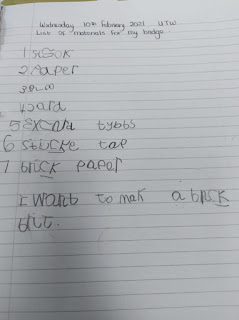 Wednesday 10th February 2021 UTW
List of materials for my bridge.
1
2 Paper
3
4 card
5 tybbs
6 sticke tap
7 brick paper
I want to mak a brick